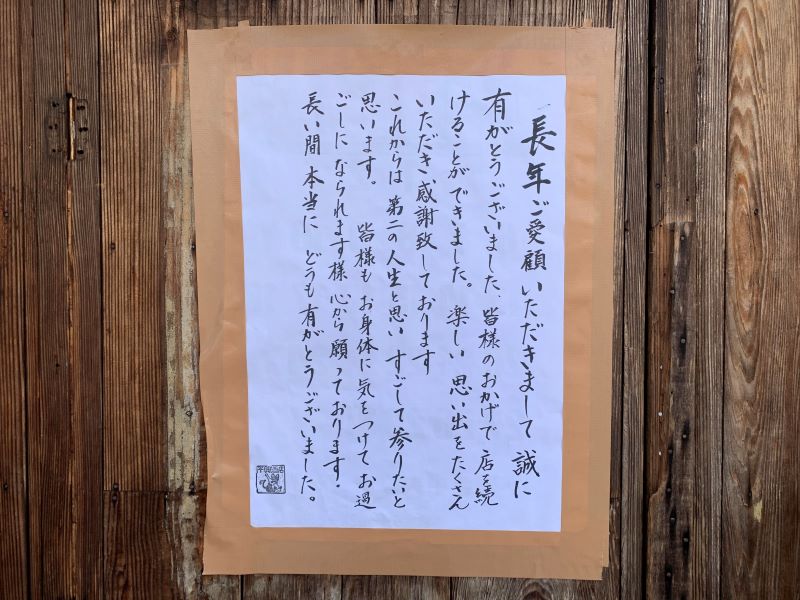 長年ご愛顧いただきまして 誠に
有がとうございました、皆様のおかげで 店を続
けることができました。楽しい 思い出をたくさん
いただき感謝致しております
これからは 第二の人生と思い すごして参りたいと
思います。 皆様も お身体に気をつけて お過
ごしに なられます様 心から願っております!
長い間 本当に どうも有がとうございました。